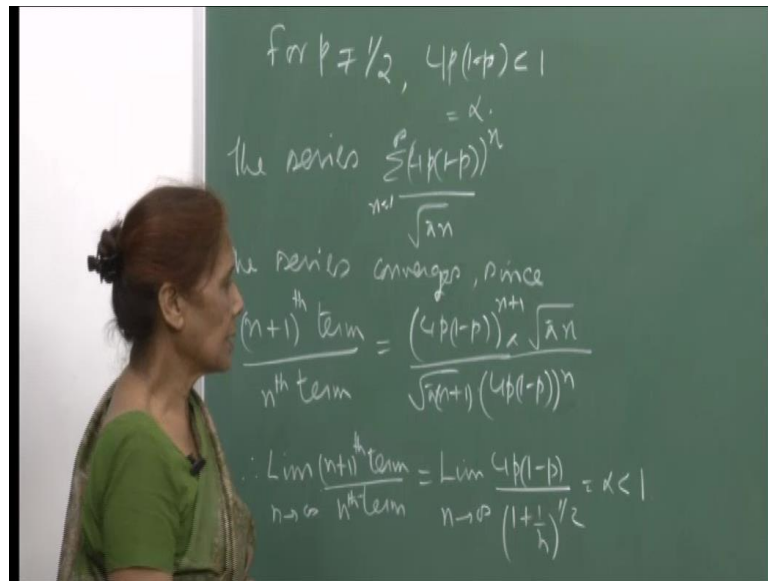 for p ≠ 1/2, 4p(1-p) < 1
= α.
The series ∑_{n=1}^{∞} (4p(1-p))^n / √(πn)
he series converges, since
(n+1)^th term / n^th term = (4p(1-p))^{n+1} × √(πn) / √(π(n+1)) (4p(1-p))^n
∴ Lim_{n→∞} (n+1)^th term / n^th term = Lim_{n→∞} 4p(1-p) / (1+1/n)^{1/2} = α < 1